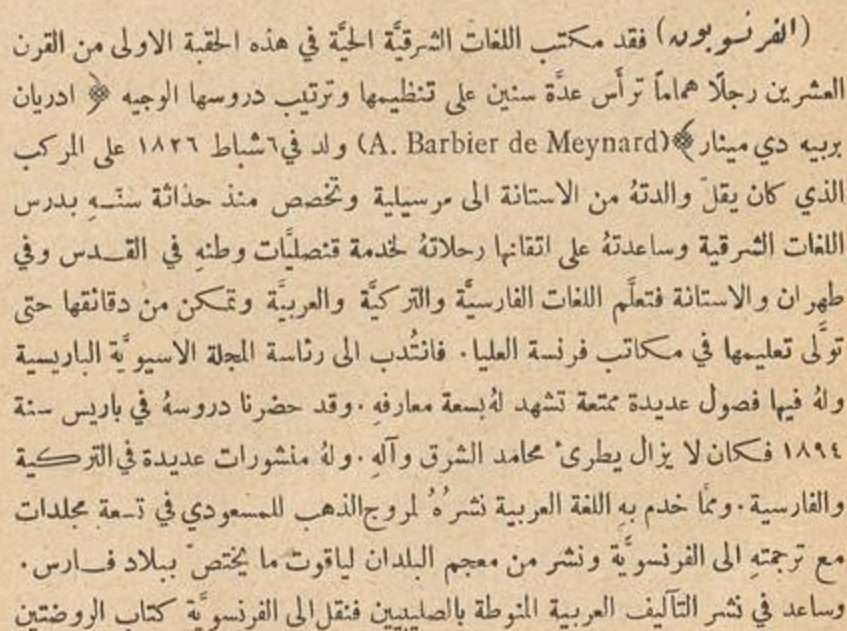 (الفرنسويون) فقد مكتب اللغات الشرقيَّة الحيَّة في هذه الحقبة الاولى من القرن
العشرين رجلًا هماماً ترأَّس عدَّة سنين على تنظيمها وترتيب دروسها الوجيه ﴿ ادريان
بربيه دي مينار ﴾ (A. Barbier de Meynard) ولد في ٦ شباط ١٨٢٦ على المركب
الذي كان يقلّ والدتهُ من الاستانة الى مرسيلية وتخصص منذ حداثة سنّهِ بدرس
اللغات الشرقية وساعدتهُ على اتقانها رحلاتهُ لخدمة قنصليَّات وطنهِ في القدس وفي
طهران والاستانة فتعلَّم اللغات الفارسيَّة والتركيَّة والعربيَّة وتمكن من دقائقها حتى
تولَّى تعليمها في مكاتب فرنسة العليا. فانتُدب الى رئاسة المجلة الاسيويَّة الباريسية
ولهُ فيها فصول عديدة ممتعة تشهد لهُ بسعة معارفهِ. وقد حضرنا دروسهُ في باريس سنة
١٨٩٤ فكان لا يزال يطرىُ محامد الشرق وآلهِ. ولهُ منشورات عديدة في التركية
والفارسية. وممَّا خدم بهِ اللغة العربية نشرُهُ لمروج الذهب للمسعودي في تسعة مجلدات
مع ترجمتهِ الى الفرنسويَّة ونشر من معجم البلدان لياقوت ما يختصّ ببلاد فارس.
وساعد في نشر التآليف العربية المنوطة بالصليبيين فنقل الى الفرنسويَّة كتاب الروضتين